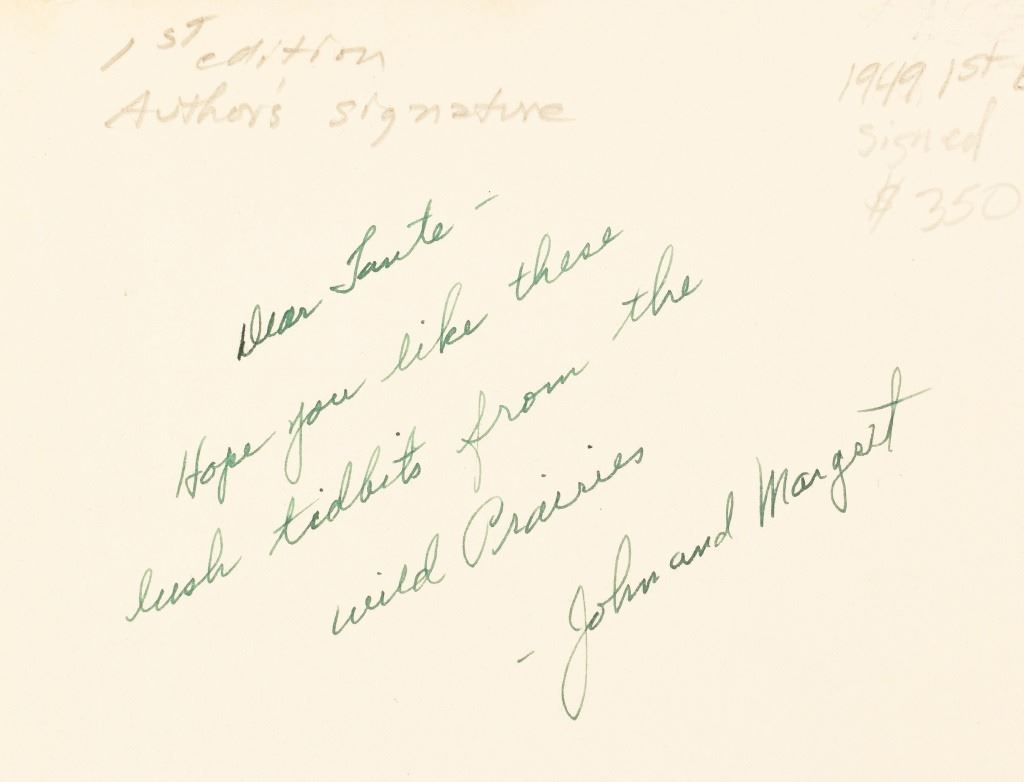 1st edition
Author's signature
1949 1st
signed
$350
Dear Tante -
Hope you like these
lush tidbits from the
wild Prairies
- John and Margrit